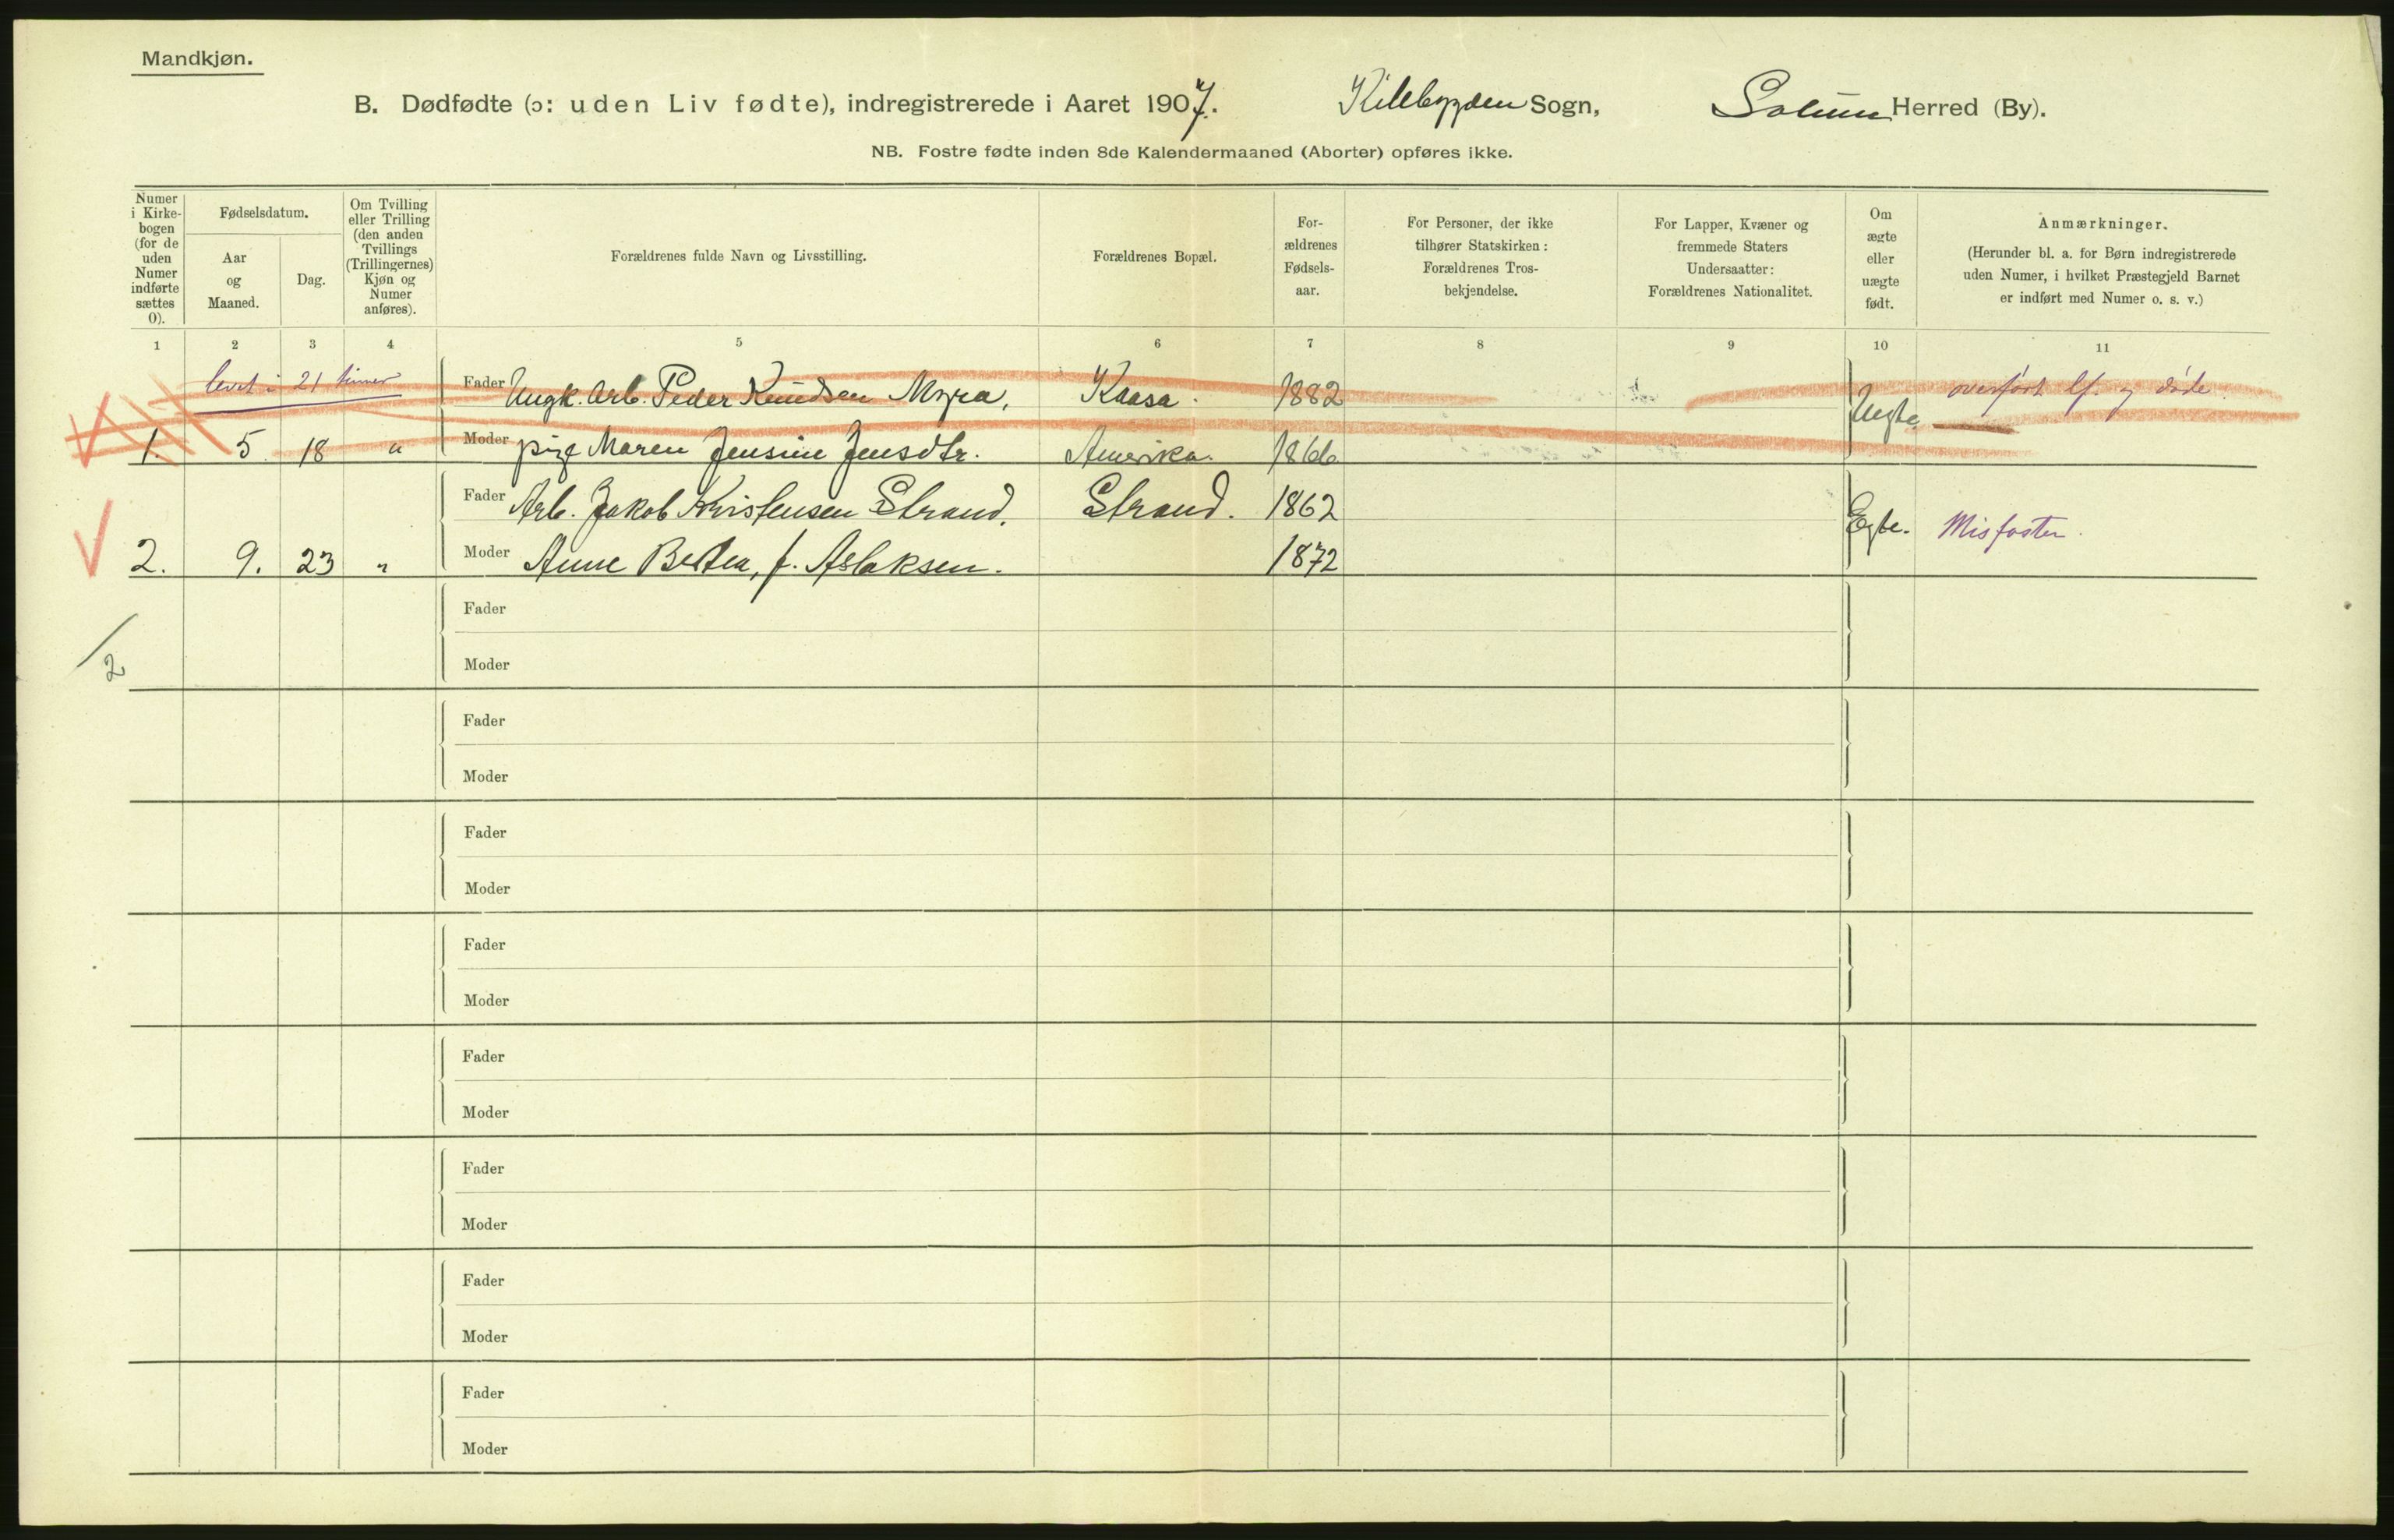 Mandkjøn.
B. Dødfødte (ɔ: uden Liv fødte), indregistrerede i Aaret 1907. Kilebygden Sogn, Solum Herred (By).
NB. Fostre fødte inden 8de Kalendermaaned (Aborter) opføres ikke.
Numer i Kirkebogen (for de uden Numer indførte sættes 0).
Fødselsdatum.
Aar og Maaned.
Dag.
Om Tvilling eller Trilling (den anden Tvillings (Trillingernes) Kjøn og Numer anføres).
Forældrenes fulde Navn og Livsstilling.
Forældrenes Bopæl.
For-
ældrenes
Fødsels-
aar.
For Personer, der ikke
tilhører Statskirken:
Forældrenes Tros-
bekjendelse.
For Lapper, Kvæner og
fremmede Staters
Undersaatter:
Forældrenes Nationalitet.
Om
ægte
eller
uægte
født.
Anmærkninger.
(Herunder bl. a. for Børn indregistrerede
uden Numer, i hvilket Præstegjeld Barnet
er indført med Numer o. s. v.)
1 2 3 4 5 6 7 8 9 10 11
levet i 21 timer
Fader Ungk. Arb. Peder Knudsen Myra, Kaasa. 1882 Uegte. overført lf. og døde
1. 5 18 " Moder pige Maren Jensine Jensdtr. Amerika. 1866
Fader Arb. Jakob Kristensen Strand, Strand. 1862 Egte. Misfoster.
2. 9. 23 " Moder Anne Bertea, f. Aslaksen. 1872
Fader
/2
Moder
Fader
Moder
Fader
Moder
Fader
Moder
Fader
Moder
Fader
Moder
Fader
Moder
Fader
Moder